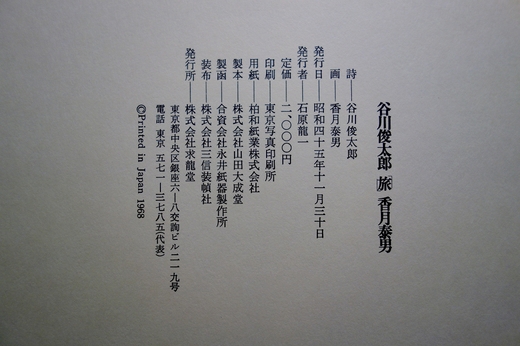 谷川俊太郎「旅」香月泰男
詩──谷川俊太郎
画──香月泰男
発行日──昭和四十五年十一月三十日
発行者──石原龍一
定価──二、〇〇〇円
印刷──東京写真印刷所
用紙──柏和紙業株式会社
製本──株式会社山田大成堂
製函──合資会社永井紙器製作所
装布──株式会社三信装幀社
発行所──株式会社求龍堂
東京都中央区銀座六─八交詢ビル二一九号
電話 東京 五七一─三七八五(代表)
©Printed in Japan 1968